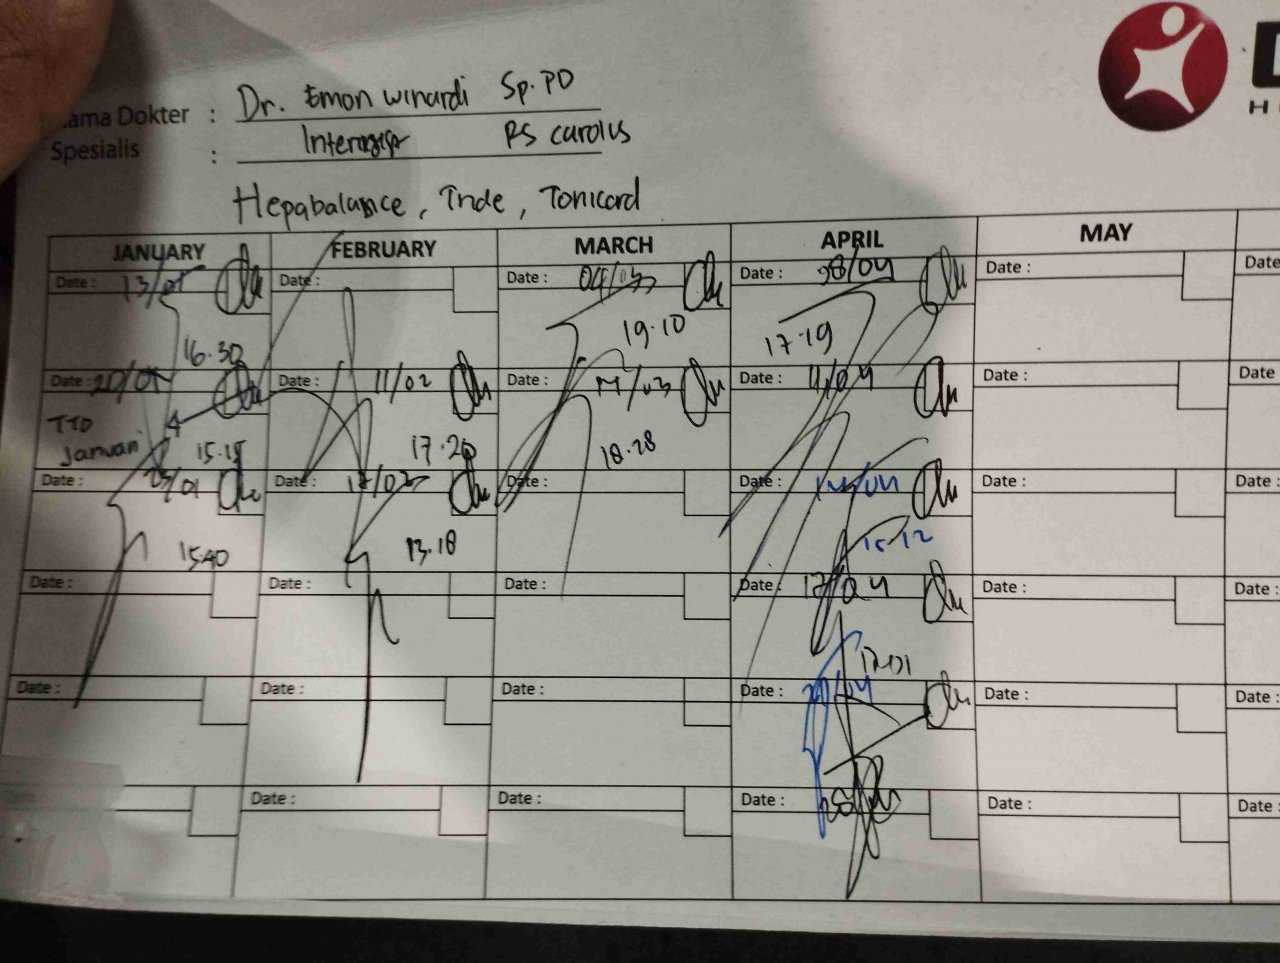 ama Dokter : Dr. Emon Winardi Sp.PD
Spesialis : RS Carolus
Hepabalance, Tride, Tonicard
JANUARY FEBRUARY MARCH APRIL MAY
Date : 13/01 Date : Date : 04/03 Date : 08/04 Date : Date
16.30 19.10 17.19
Date : 20/01 Date : 11/02 Date : Date : 11/04 Date : Date
TTD
Januari 15.15 17.20 18.28
Date : Date : 17/02 Date : Date : 14/04 Date : Date :
15.40 13.18 15.12
Date : Date : Date : Date : 17/04 Date : Date :
Date : Date : Date : Date : Date : Date :
Date : Date : Date : Date : Date :